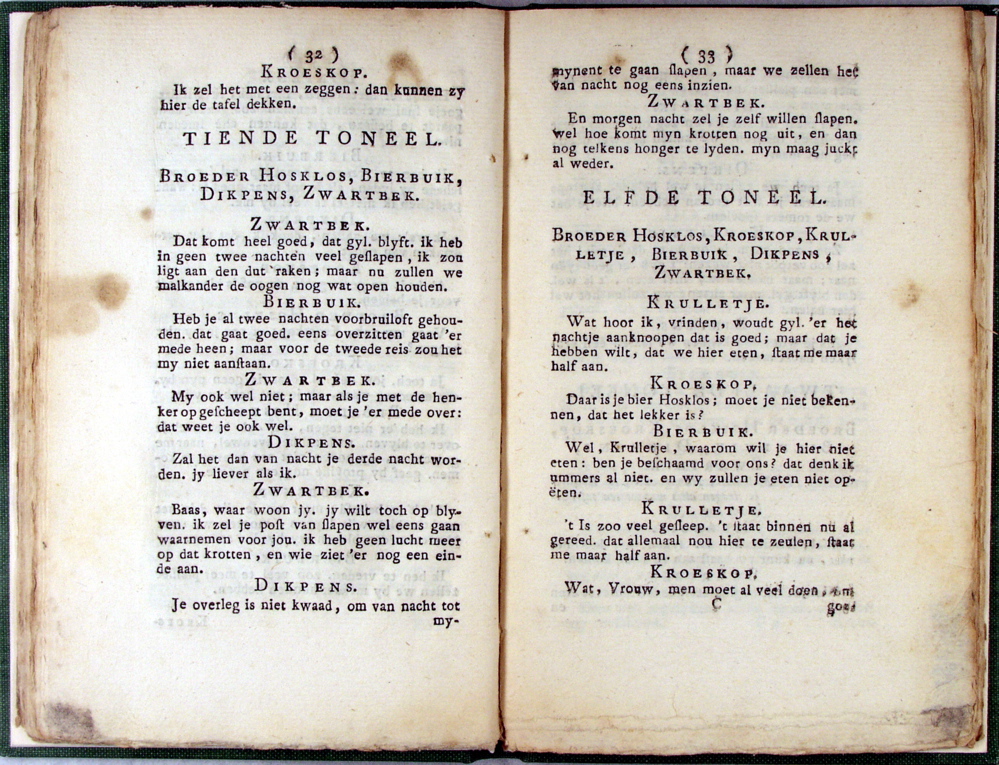 ( 32 )
KROESKOP.
Ik zel het met een zeggen: dan kunnen zy
hier de tafel dekken.
TIENDE TONEEL.
BROEDER HOSKLOS, BIERBUIK,
DIKPENS, ZWARTBEK.
ZWARTBEK.
Dat komt heel goed, dat gyl. blyft. ik heb
in geen twee nachten veel geſlapen, ik zou
ligt aan den dut raken; maar nu zullen we
malkander de oogen nog wat open houden.
BIERBUIK.
Heb je al twee nachten voorbruiloft gehou-
den. dat gaat goed. eens overzitten gaat 'er
mede heen; maar voor de tweede reis zou het
my niet aanſtaan.
ZWARTBEK.
My ook wel niet; maar als je met de hen-
ker op geſcheept bent, moet je 'er mede over:
dat weet je ook wel.
DIKPENS.
Zal het dan van nacht je derde nacht wor-
den. jy liever als ik.
ZWARTBEK.
Baas, waar woon jy. jy wilt toch op bly-
ven. ik zel je poſt van ſlapen wel eens gaan
waarnemen voor jou. ik heb geen lucht meer
op dat krotten, en wie ziet 'er nog een ein-
de aan.
DIKPENS.
Je overleg is niet kwaad, om van nacht tot
my-
( 33 )
mynent te gaan ſlapen, maar we zellen het
van nacht nog eens inzien.
ZWARTBEK.
En morgen nacht zel je zelf willen ſlapen.
wel hoe komt myn krotten nog uit, en dan
nog telkens honger te lyden. myn maag juckt
al weder.
ELFDE TONEEL.
BROEDER HOSKLOS, KROESKOP, KRUL-
LETJE, BIERBUIK, DIKPENS,
ZWARTBEK.
KRULLETJE.
Wat hoor ik, vrinden, woudt gyl. 'er het
nachtje aanknoopen dat is goed; maar dat je
hebben wilt, dat we hier eten, ſtaat me maar
half aan.
KROESKOP.
Daar is je bier Hosklos; moet je niet beken-
nen, dat het lekker is?
BIERBUIK.
Wel, Krulletje, waarom wil je hier niet
eten: ben je beſchaamd voor ons? dat denk ik
ummers al niet. en wy zullen je eten niet op-
ëten.
KRULLETJE.
't Is zoo veel geſleep. 't ſtaat binnen nu al
gereed. dat allemaal nou hier te zeulen, ſtaat
me maar half aan.
KROESKOP.
Wat, Vrouw, men moet al veel doen, om
C goe-